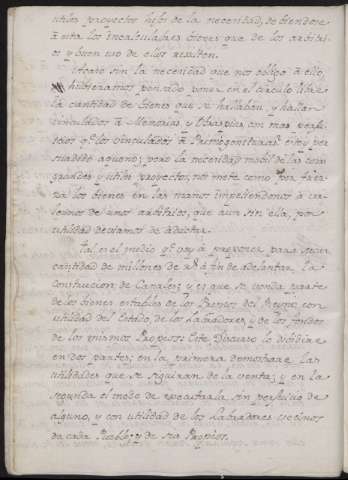 utiles proyectos hijos de la necesidad, debiendose
a esta los incalculables bienes que de los arbitri-
os y buen uso de ellos resulten.
Acaso sin la necesidad que nos obligó a ello,
hubieramos pensado poner en el circulo libre
la cantidad de bienes que se hallaban, y hallan
vinculados a Memorias, y Obras pias, con mas perjui-
cios q.e los vinculados a Primogenituras? estoy per-
suadido a que no; pero la necesidad movil de las cosas
grandes y utiles proyectos, nos mete como por fuer-
za los bienes en las manos impeliendonos a
de unos arbitrios, que aun sin ella, por
utilidad deviamos de adoctar.
Tal es el medio q.e voy a proponer para
cantidad de millones de r.s a fin de adelantar la
Construccion de Canales; y es que se venda parte
de los bienes estables de los Propios del Reyno, con
utilidad del Estado, de los Labradores, y de los fondos
de los mismos Propios. Este Discurso lo dividire
en dos partes; en la primera demostrare las
utilidades que se siguiran de la venta; y en la
segunda el modo de executarla sin perjuicio de
alguno, y con utilidad de los Labradores vecinos
de cada Pueblo, y de sus Propios.